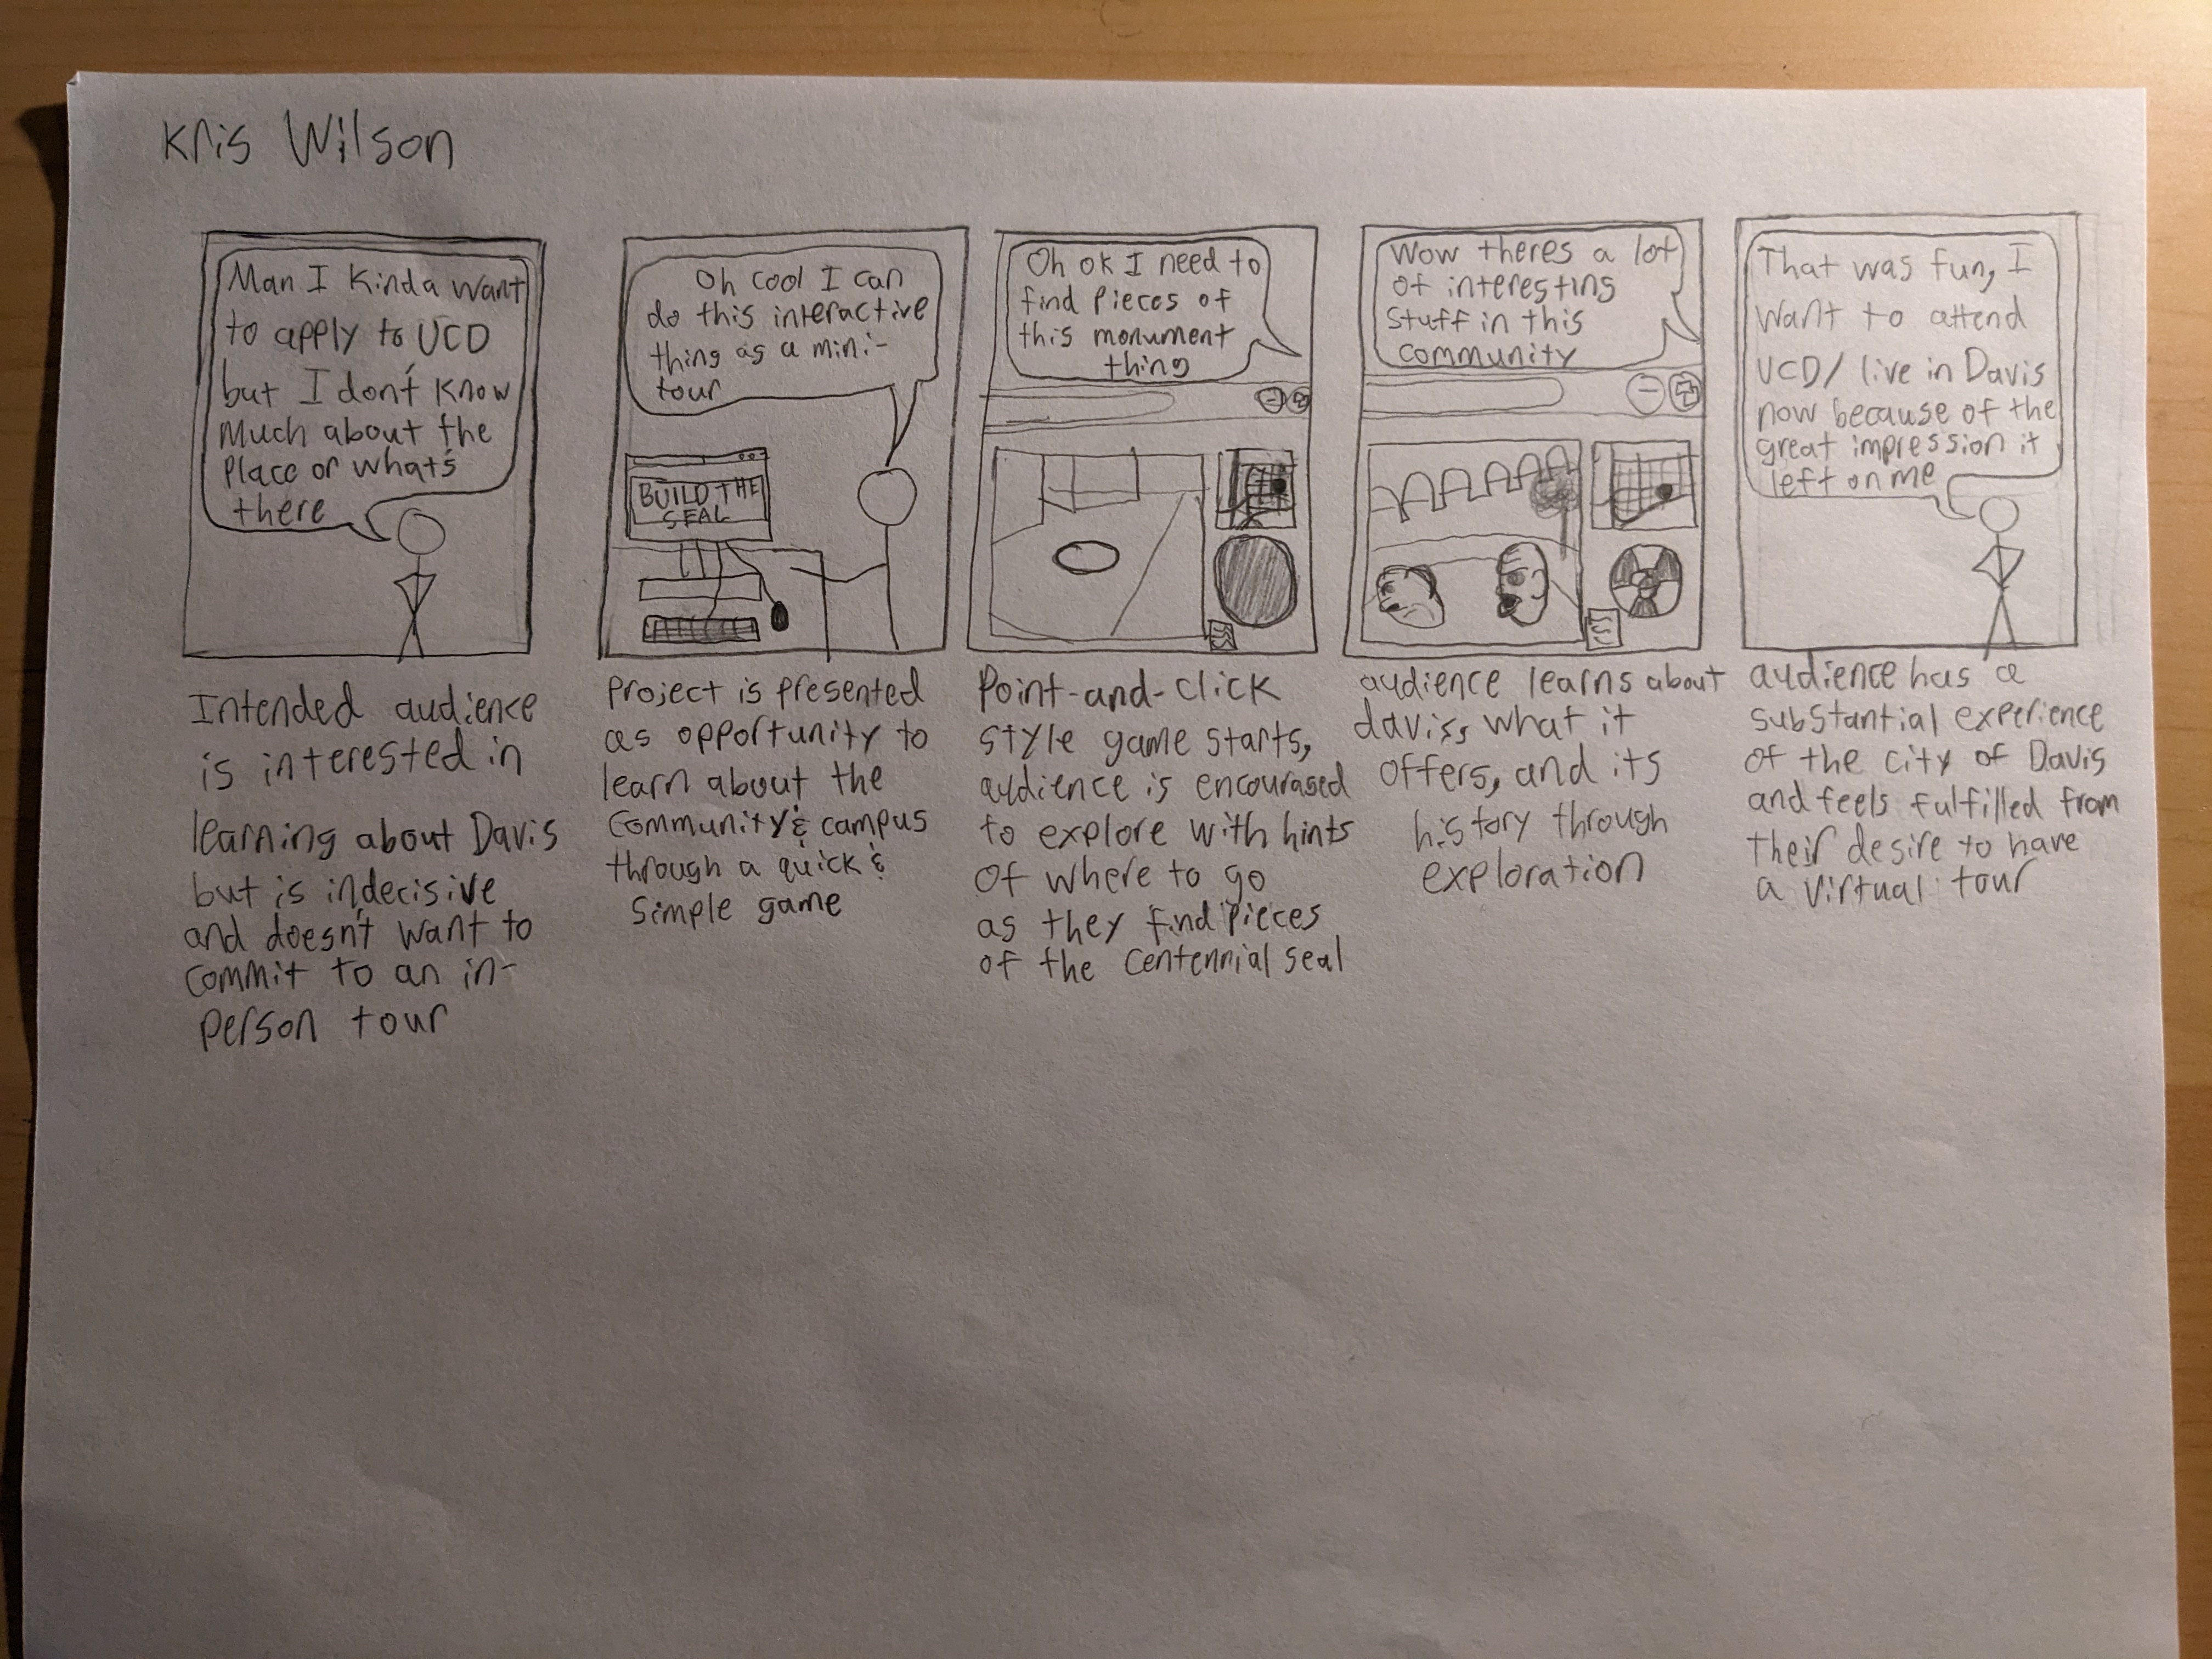 Kris Wilson
Man I kinda want
to apply to UCD
but I don't know
much about the
place or what's
there
Intended audience
is interested in
learning about Davis
but is indecisive
and doesn't want to
commit to an in-
person tour
Oh cool I can
do this interactive
thing as a mini-
tour
BUILD THE
SEAL
Project is presented
as opportunity to
learn about the
community & campus
through a quick &
simple game
Oh ok I need to
find pieces of
this monument
thing
Point-and-click
style game starts,
audience is encouraged
to explore with hints
of where to go
as they find pieces
of the centennial seal
Wow theres a lot
of interesting
stuff in this
community
audience learns about
davis, what it
offers, and its
history through
exploration
That was fun, I
want to attend
UCD/ live in Davis
now because of the
great impression it
left on me
audience has a
substantial experience
of the city of Davis
and feels fulfilled from
their desire to have
a virtual tour